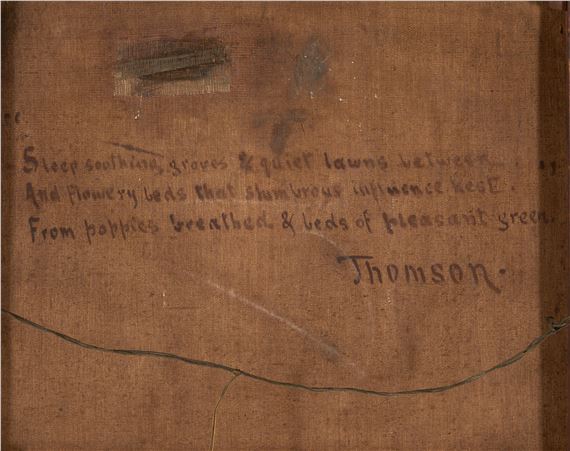 Sleep soothing groves & quiet lawns between
And flowery beds that slumbrous influence kest.
From poppies breathed & beds of pleasant green.
Thomson.